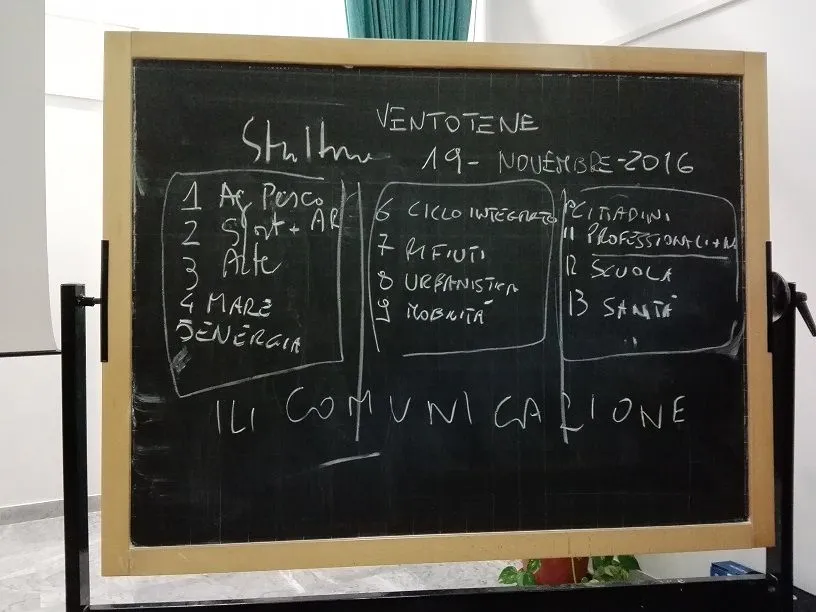 VENTOTENE
19 - NOVEMBRE - 2016
1 Ag Pesca
2
3 Arte
4 MARE
5 ENERGIA
6 CICLO INTEGRATO
7 RIFIUTI
8 URBANISTICA
9 MOBILITÀ
CITTADINI
11 PROFESSIONALI
12 SCUOLA
13 SANITÀ
COMUNICAZIONE